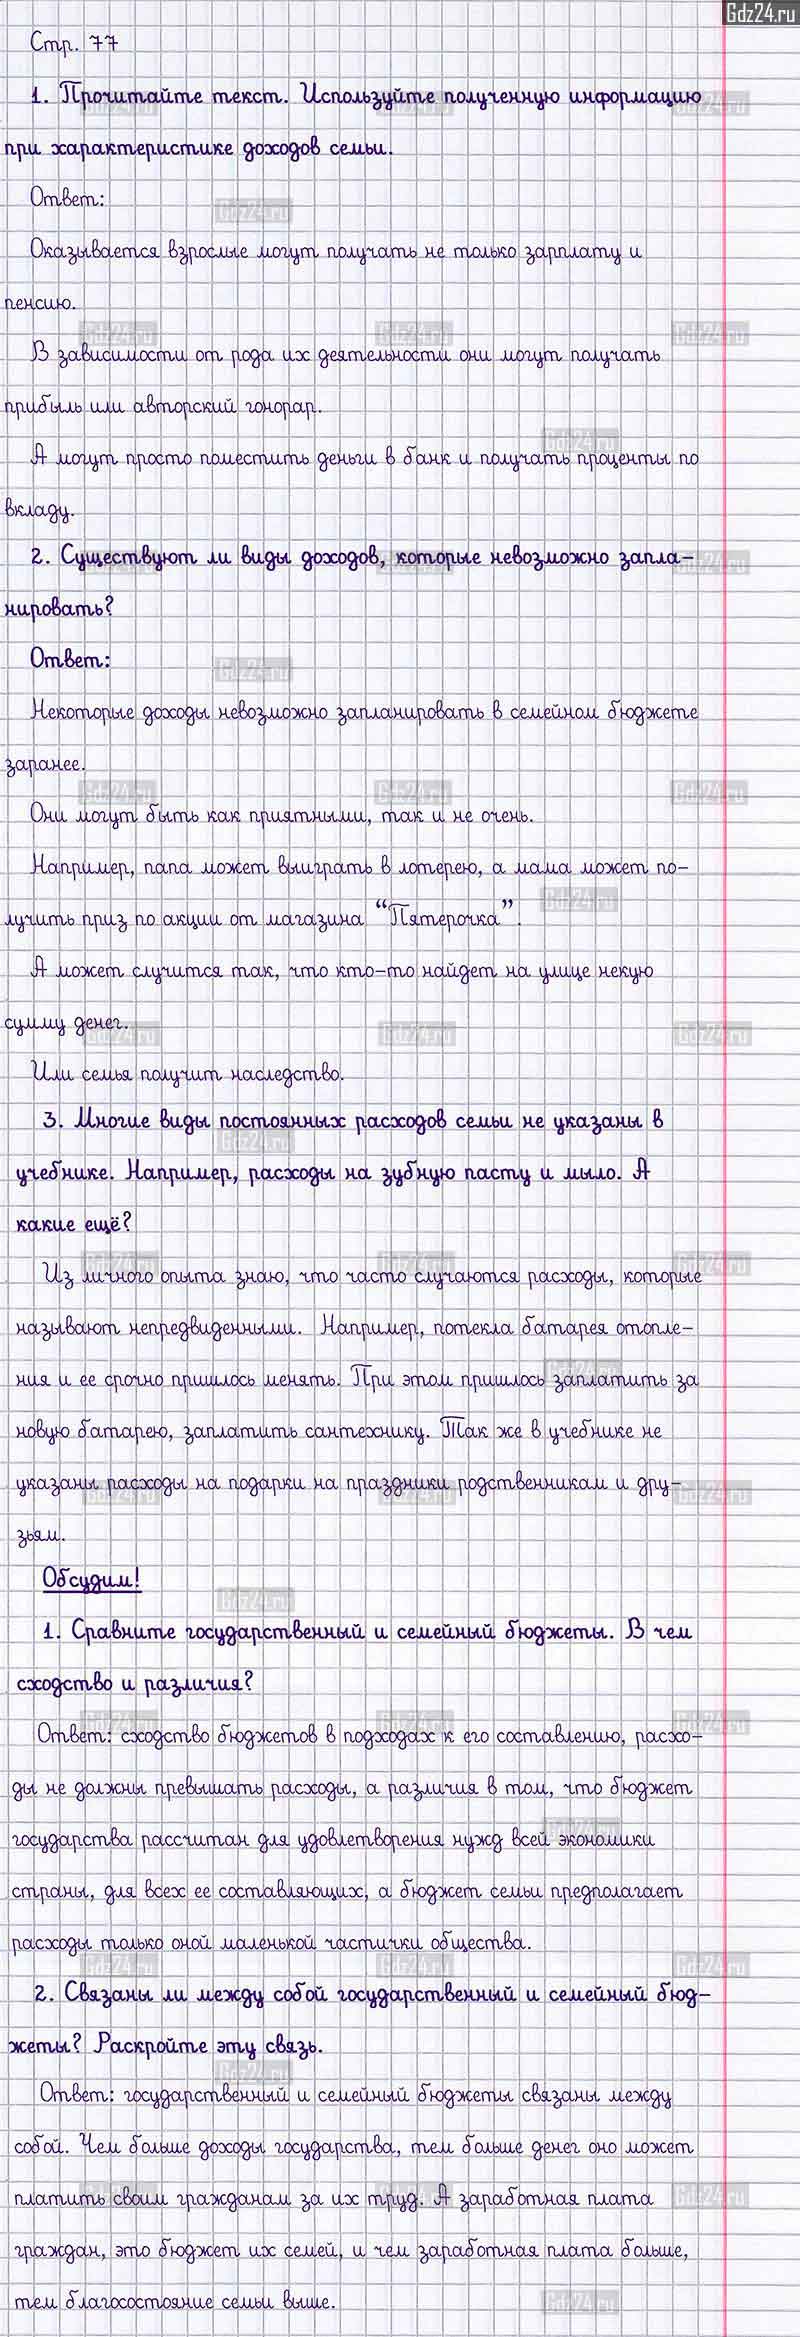 Gdz24.ru
Стр. 77
1. Прочитайте текст. Используйте полученную информацию
при характеристике доходов семьи.
Ответ:
Оказывается взрослые могут получать не только зарплату и
пенсию.
В зависимости от рода их деятельности они могут получать
прибыль или авторский гонорар.
А могут просто поместить деньги в банк и получать проценты по
вкладу.
2. Существуют ли виды доходов, которые невозможно запла-
нировать?
Ответ:
Некоторые доходы невозможно запланировать в семейном бюджете
заранее.
Они могут быть как приятными, так и не очень.
Например, папа может выиграть в лотерею, а мама может по-
лучить приз по акции от магазина “Пятерочка”.
А может случится так, что кто-то найдет на улице некую
сумму денег.
Или семья получит наследство.
3. Многие виды постоянных расходов семьи не указаны в
учебнике. Например, расходы на зубную пасту и мыло. А
какие ещё?
Из личного опыта знаю, что часто случаются расходы, которые
называют непредвиденными. Например, потекла батарея отопле-
ния и ее срочно пришлось менять. При этом пришлось заплатить за
новую батарею, заплатить сантехнику. Так же в учебнике не
указаны расходы на подарки на праздники родственникам и дру-
зьям.
Обсудим!
1. Сравните государственный и семейный бюджеты. В чем
сходство и различия?
Ответ: сходство бюджетов в подходах к его составлению, расхо-
ды не должны превышать расходы, а различия в том, что бюджет
государства рассчитан для удовлетворения нужд всей экономики
страны, для всех ее составляющих, а бюджет семьи предполагает
расходы только оной маленькой частички общества.
2. Связаны ли между собой государственный и семейный бюд-
жеты? Раскройте эту связь.
Ответ: государственный и семейный бюджеты связаны между
собой. Чем больше доходы государства, тем больше денег оно может
платить своим гражданам за их труд. А заработная плата
граждан, это бюджет их семей, и чем заработная плата больше,
тем благосостояние семьи выше.